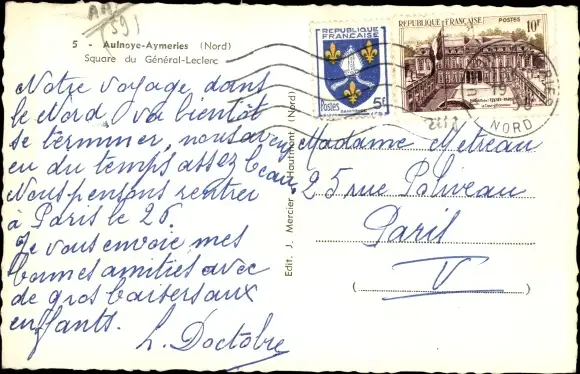 AUL
(59)
5 - Aulnoye-Aymeries (Nord)
Square du Général-Leclerc
Notre voyage dans
le Nord va bientôt
se terminer, nous avons
eu du temps assez beau.
Nous pensons rentrer
à Paris le 26.
Je vous envoie mes
bonnes amitiés avec
de gros baisers aux
enfants.
L. Doctobre
Edit. J. Mercier - Hautmont (Nord)
REPUBLIQUE
FRANÇAISE
Postes
5F
REPUBLIQUE FRANÇAISE
POSTES
10F
19
NORD
Madame Metreau
25 rue Poliveau
Paris
V